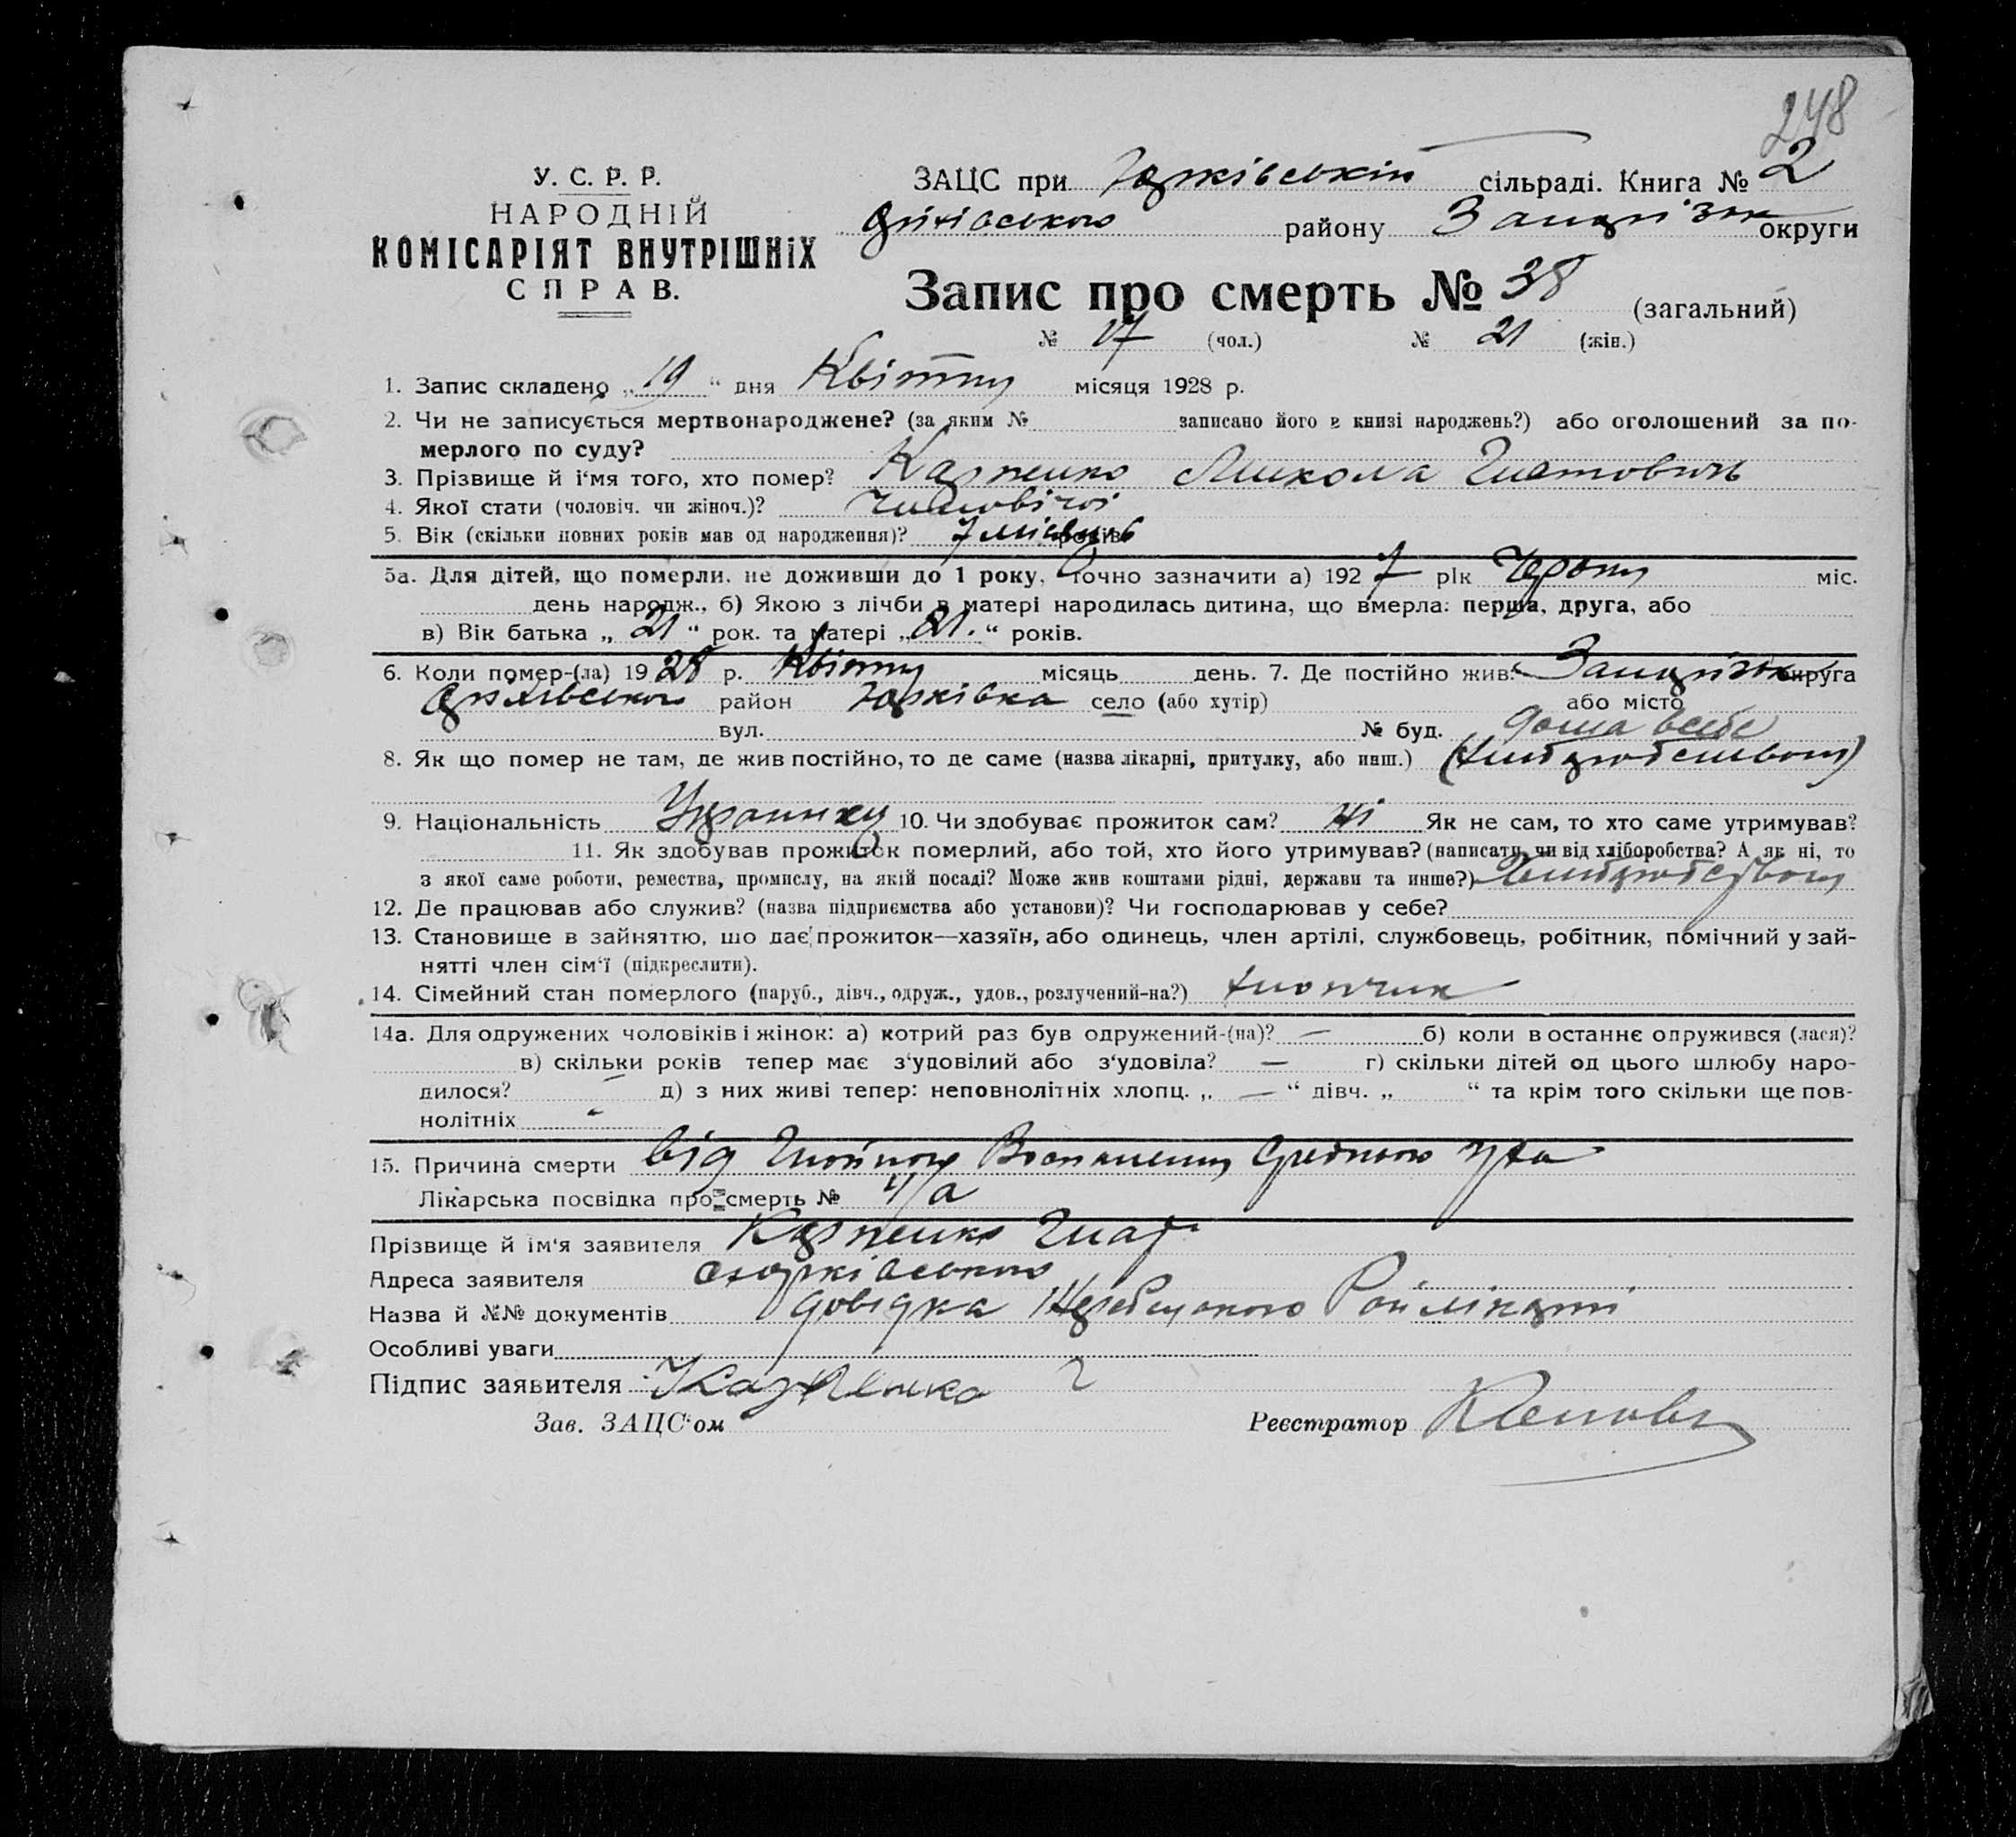 248
У. С. Р. Р.
НАРОДНІЙ
КОМІСАРІЯТ ВНУТРІШНІХ
СПРАВ.
ЗАЦС при сільраді. Книга № 2
району округи
Запис про смерть № 38 (загальний)
№ 17 (чол.) № 21 (жін.)
1. Запис складено „19“ дня Квітня місяця 1928 р.
2. Чи не записується мертвонароджене? (за яким № записано його в книзі народжень?) або оголошений за по-
мерлого по суду?
3. Прізвище й і‘мя того, хто помер? Карпенко Микола Гнатович
4. Якої стати (чоловіч. чи жіноч.)? Чоловічої
5. Вік (скільки повних років мав од народження)? 7 місяців років
5а. Для дітей, що померли, не доживши до 1 року, точно зазначити а) 1927 рік міс.
день народж., б) Якою з лічби в матері народилась дитина, що вмерла: перша, друга, або
в) Вік батька „ 21 “ рок. та матері „ 21. “ років.
6. Коли помер-(ла) 1928 р. Квітня місяць день. 7. Де постійно жив? округа
район Юрківка село (або хутір) або місто
вул. № буд.
8. Як що помер не там, де жив постійно, то де саме (назва лікарні, притулку, або инш.)
9. Національність 10. Чи здобуває прожиток сам? Ні Як не сам, то хто саме утримував?
11. Як здобував прожиток померлий, або той, хто його утримував? (написати, чи від хліборобства? А як ні, то
з якої саме роботи, ремества, промислу, на якій посаді? Може жив коштами рідні, держави та инше?)
12. Де працював або служив? (назва підприємства або установи)? Чи господарював у себе?
13. Становище в зайняттю, що дає прожиток—хазяїн, або одинець, член артілі, службовець, робітник, помічний у зай-
нятті член сім‘ї (підкреслити).
14. Сімейний стан померлого (паруб., дівч., одруж., удов., розлучений-на?) хлопчик
14а. Для одружених чоловіків і жінок: а) котрий раз був одружений-(на)? — б) коли в останнє одружився (лася)?
в) скільки років тепер має з‘удовілий або з‘удовіла? — г) скільки дітей од цього шлюбу наро-
дилося? — д) з них живі тепер: неповнолітніх хлопц. „ — “ дівч. „ “ та крім того скільки ще пов-
нолітніх -
15. Причина смерти від Гнойного Воспаления Среднього Уха
Лікарська посвідка про смерть №
Прізвище й ім‘я заявителя Карпенко Гнат
Адреса заявителя
Назва й №№ документів довідка Райлікарні
Особливі уваги
Підпис заявителя Карпенко Г
Зав. ЗАЦС‘ом Реєстратор